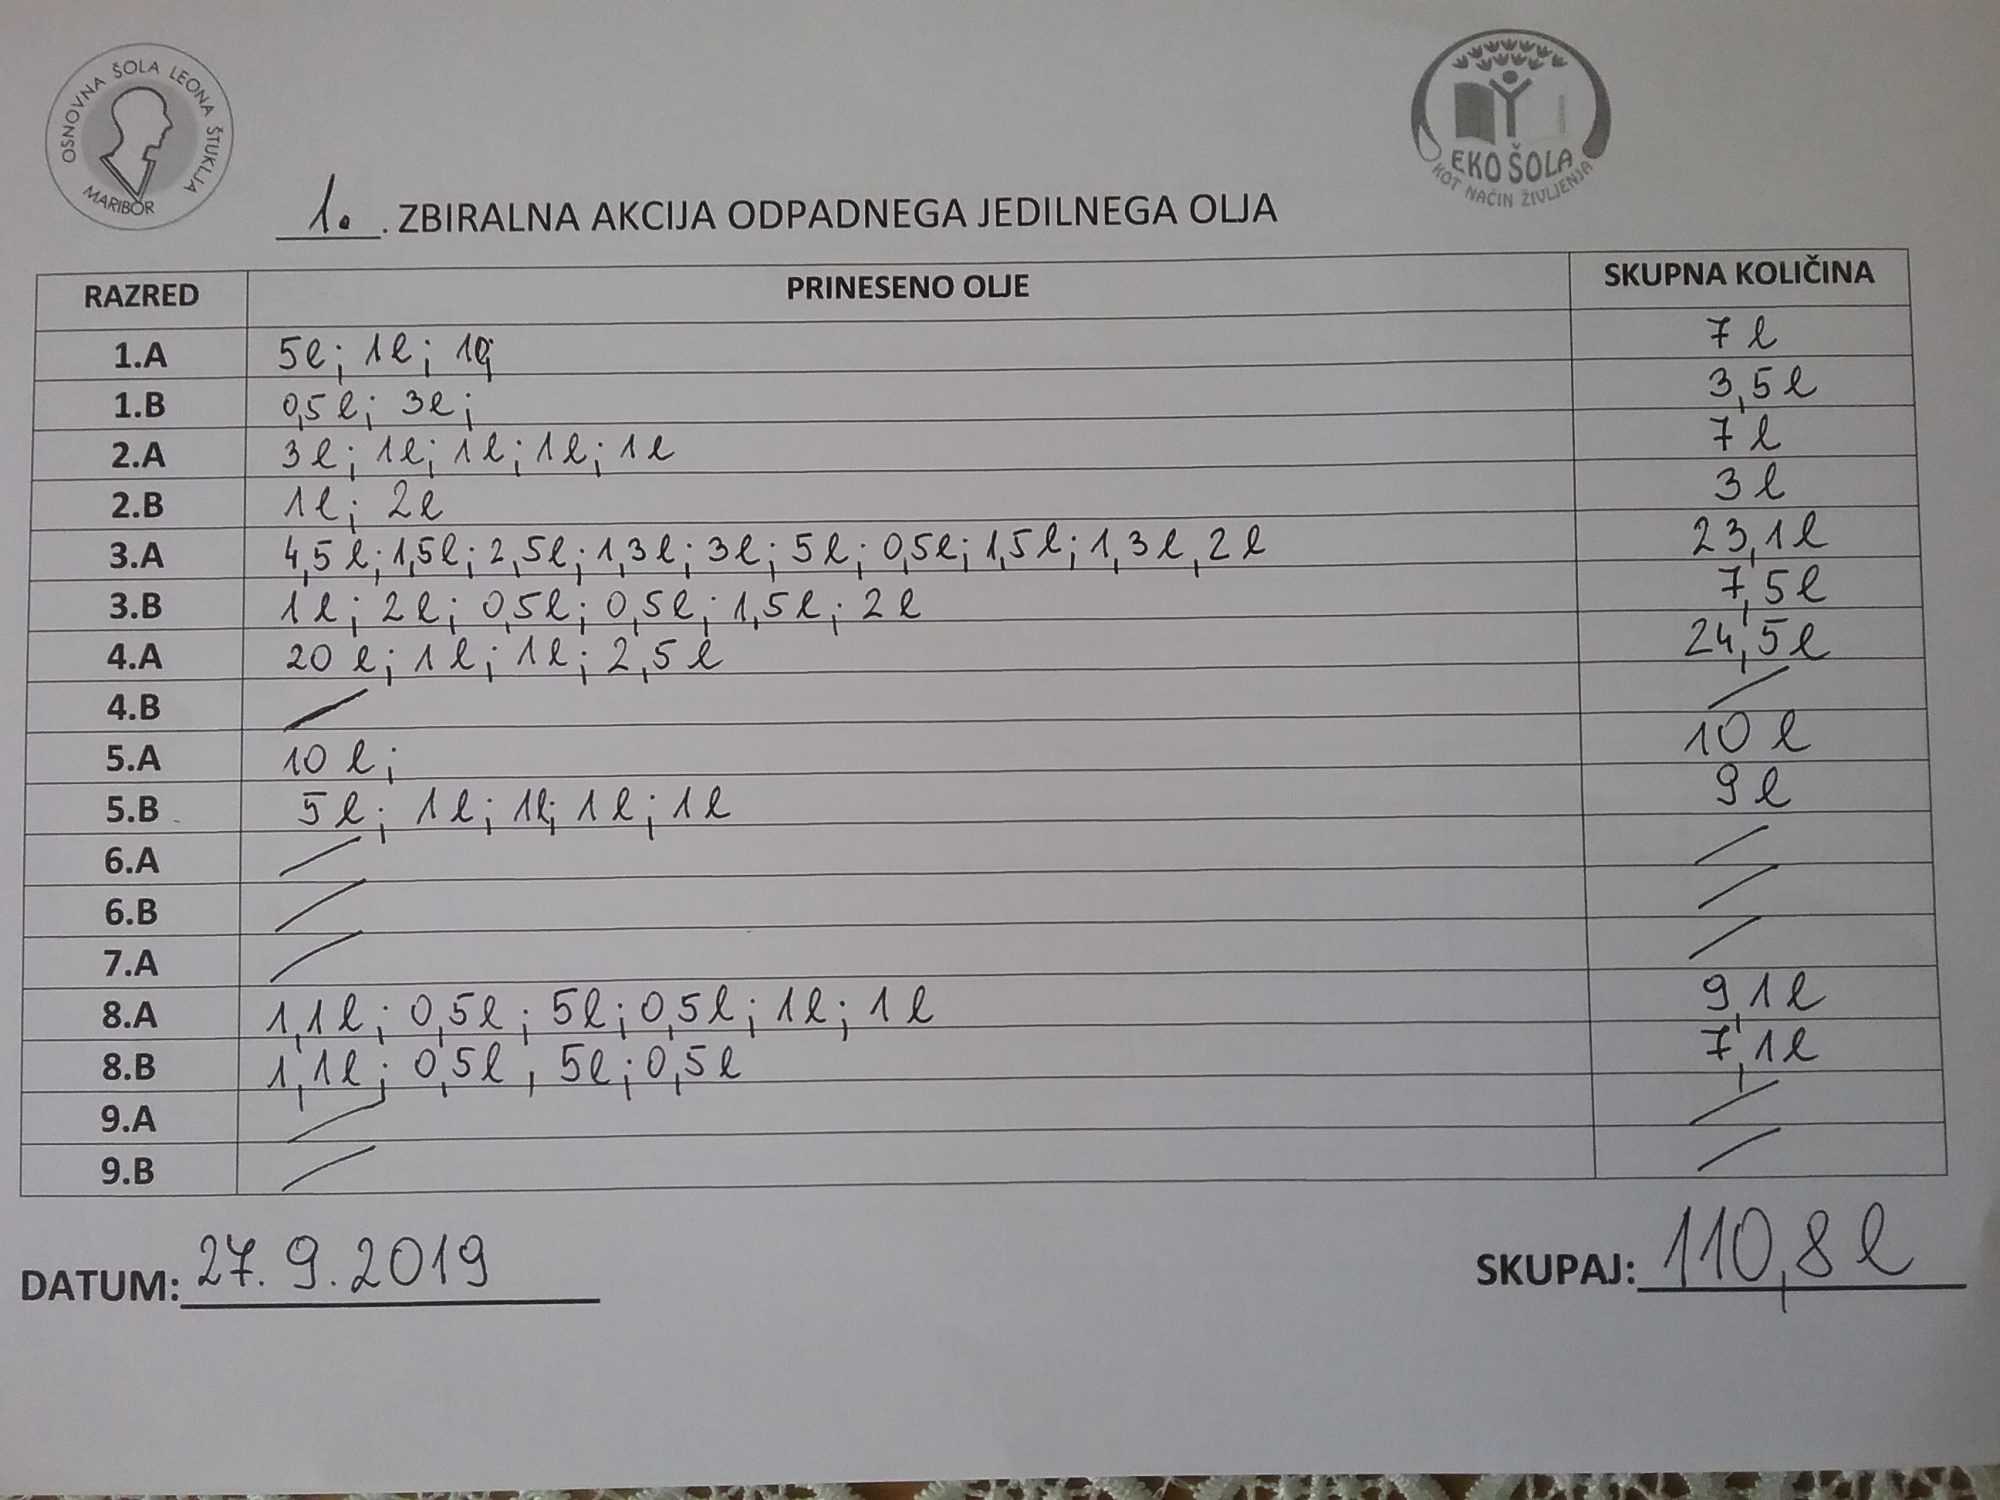 OSNOVNA ŠOLA LEONA ŠTUKLJA
MARIBOR
EKO ŠOLA
KOT NAČIN ŽIVLJENJA
1. . ZBIRALNA AKCIJA ODPADNEGA JEDILNEGA OLJA
RAZRED PRINESENO OLJE SKUPNA KOLIČINA
1.A 5l; 1l; 1l; 7 l
1.B 0,5 l; 3l; 3,5 l
2.A 3 l; 1l; 1l; 1l; 1l 7 l
2.B 1l; 2l 3 l
3.A 4,5 l; 1,5l; 2,5l; 1,3l; 3l; 5l; 0,5l; 1,5l; 1,3l, 2l 23,1l
3.B 1l; 2l; 0,5l; 0,5l; 1,5l; 2l 7,5l
4.A 20 l; 1l; 1l; 2,5 l 24,5l
4.B / /
5.A 10 l; 10 l
5.B 5l; 1l; 1l; 1l; 1l 9 l
6.A / /
6.B / /
7.A / /
8.A 1,1l; 0,5l; 5l; 0,5l; 1l; 1l 9,1l
8.B 1,1l; 0,5l, 5l; 0,5l 7,1l
9.A / /
9.B / /
DATUM: 27. 9. 2019 SKUPAJ: 110,8 l